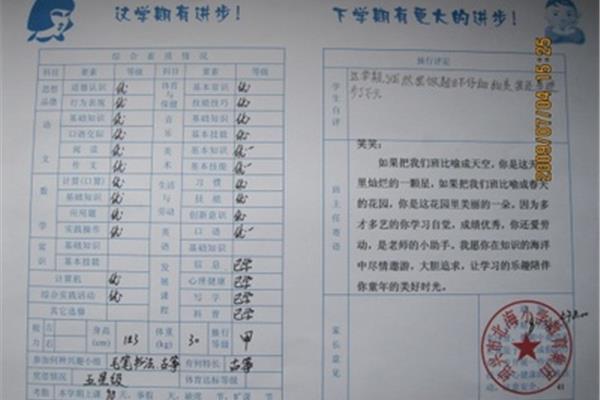 这学期有进步!
下学期有更大的进步!
综合素质情况
科目 要素 等级 科目 要素 等级
思想品德 道德认识 优 体育与保健 基本常识 优
行为表现 优 技能技巧 优
语文 基础知识 优 音乐 基础知识 优
口语交际 优 基本技能 优
阅读 优 美术 基本知识 优
作文 优 基本技能 优
数学 计算(口算) 优 生活与劳动 习惯 优
基础知识 优 技能 优
应用题 优 创新意识 优
实践操作 优 英语 口语 优
常识 基础知识 基础知识
基本技能 发展课程 信息 已学
计算机 优 心理健康 已学
综合实践活动 优 写字 已学
其它选修 科普 已学
视力 左 右 身高(cm) 123 体重(kg) 30 操行等级 甲
参加何种兴趣小组 毛笔书法、古筝 有何特长 古筝
奖惩情况 五星级 体育达标等级
操行评定
学生自评
班主任寄语
笑笑:
如果把我们班比喻成天空,你是这天
里灿烂的一颗星,如果把我们班比喻成春天
的花园,你是这花园里美丽的一朵。因为多
才多艺的你学习自觉,成绩优秀,你还爱劳
动,是老师的小助手。我愿你在知识的海洋
中尽情遨游,大胆追求,让学习的乐趣陪伴
你童年的美好时光。
家长意见
2009/07/04 15:25